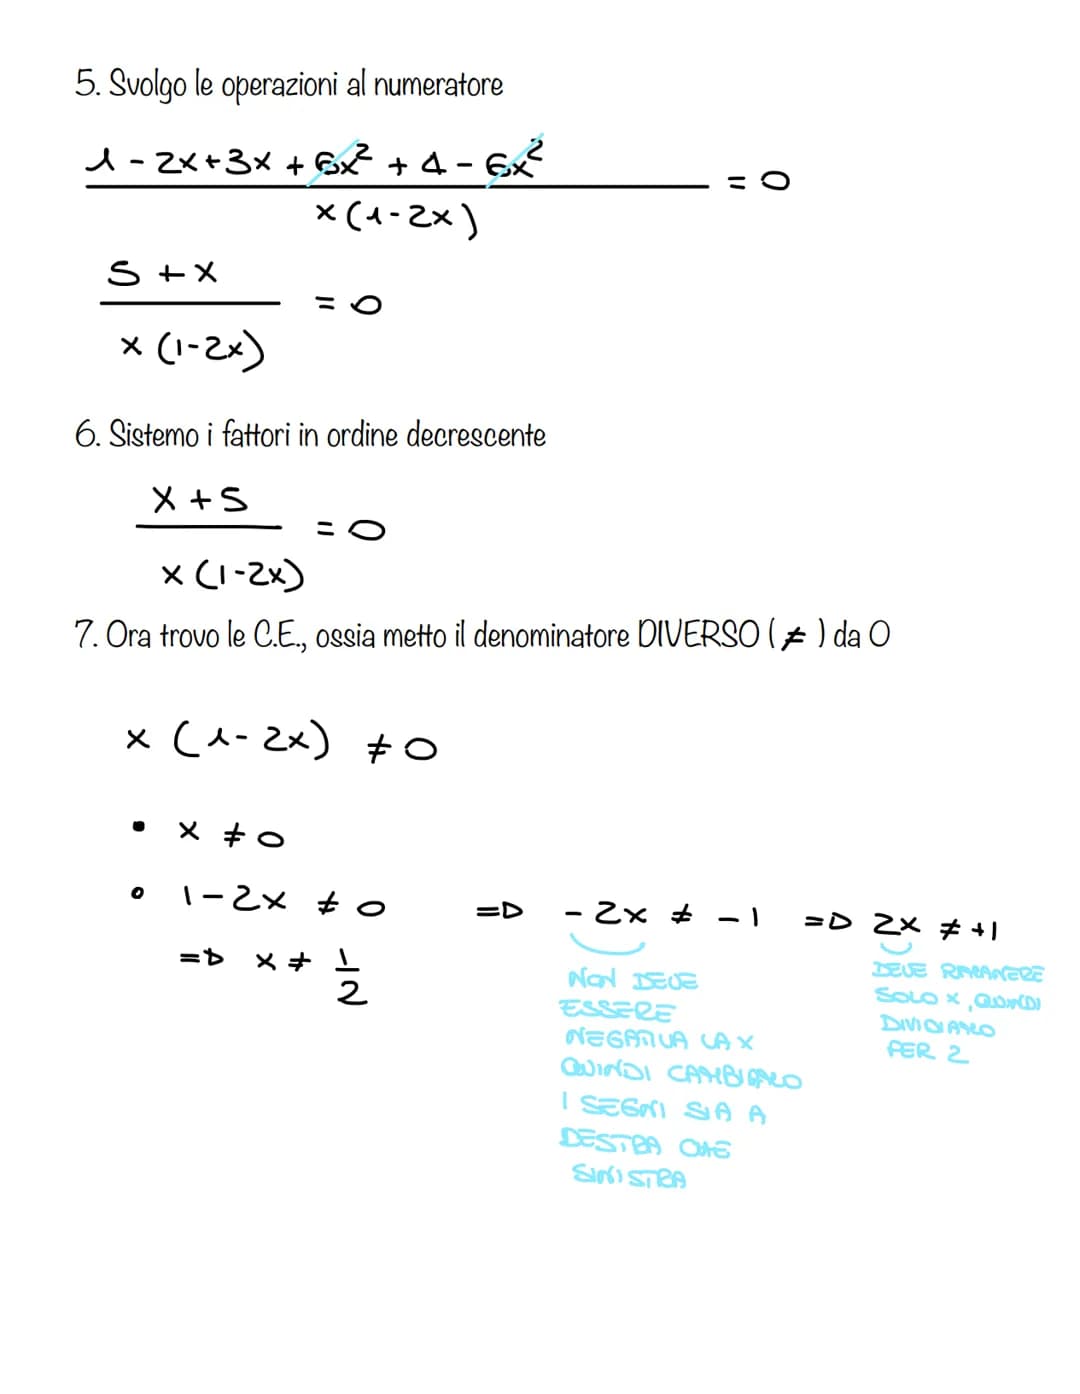 5. Svolgo le operazioni al numeratore
1 - 2x + 3x + 6x² + 4 - 6x²
= 0
x (1 - 2x)
5 + x
= 0
x (1-2x)
6. Sistemo i fattori in ordine decrescente
x + 5
= 0
x (1-2x)
7. Ora trovo le C.E., ossia metto il denominatore DIVERSO ( ≠ ) da 0
x (1 - 2x) ≠ 0
• x ≠ 0
• 1 - 2x ≠ 0 => - 2x ≠ - 1 => 2x ≠ +1
=> x ≠ 1/2
NON DEVE
ESSERE
NEGATIVA LA X
QUINDI CAMBIAMO
I SEGNI SIA A
DESTRA CHE
SINISTRA
DEVE RIMANERE
SOLO X, QUINDI
DIVIDIAMO
PER 2